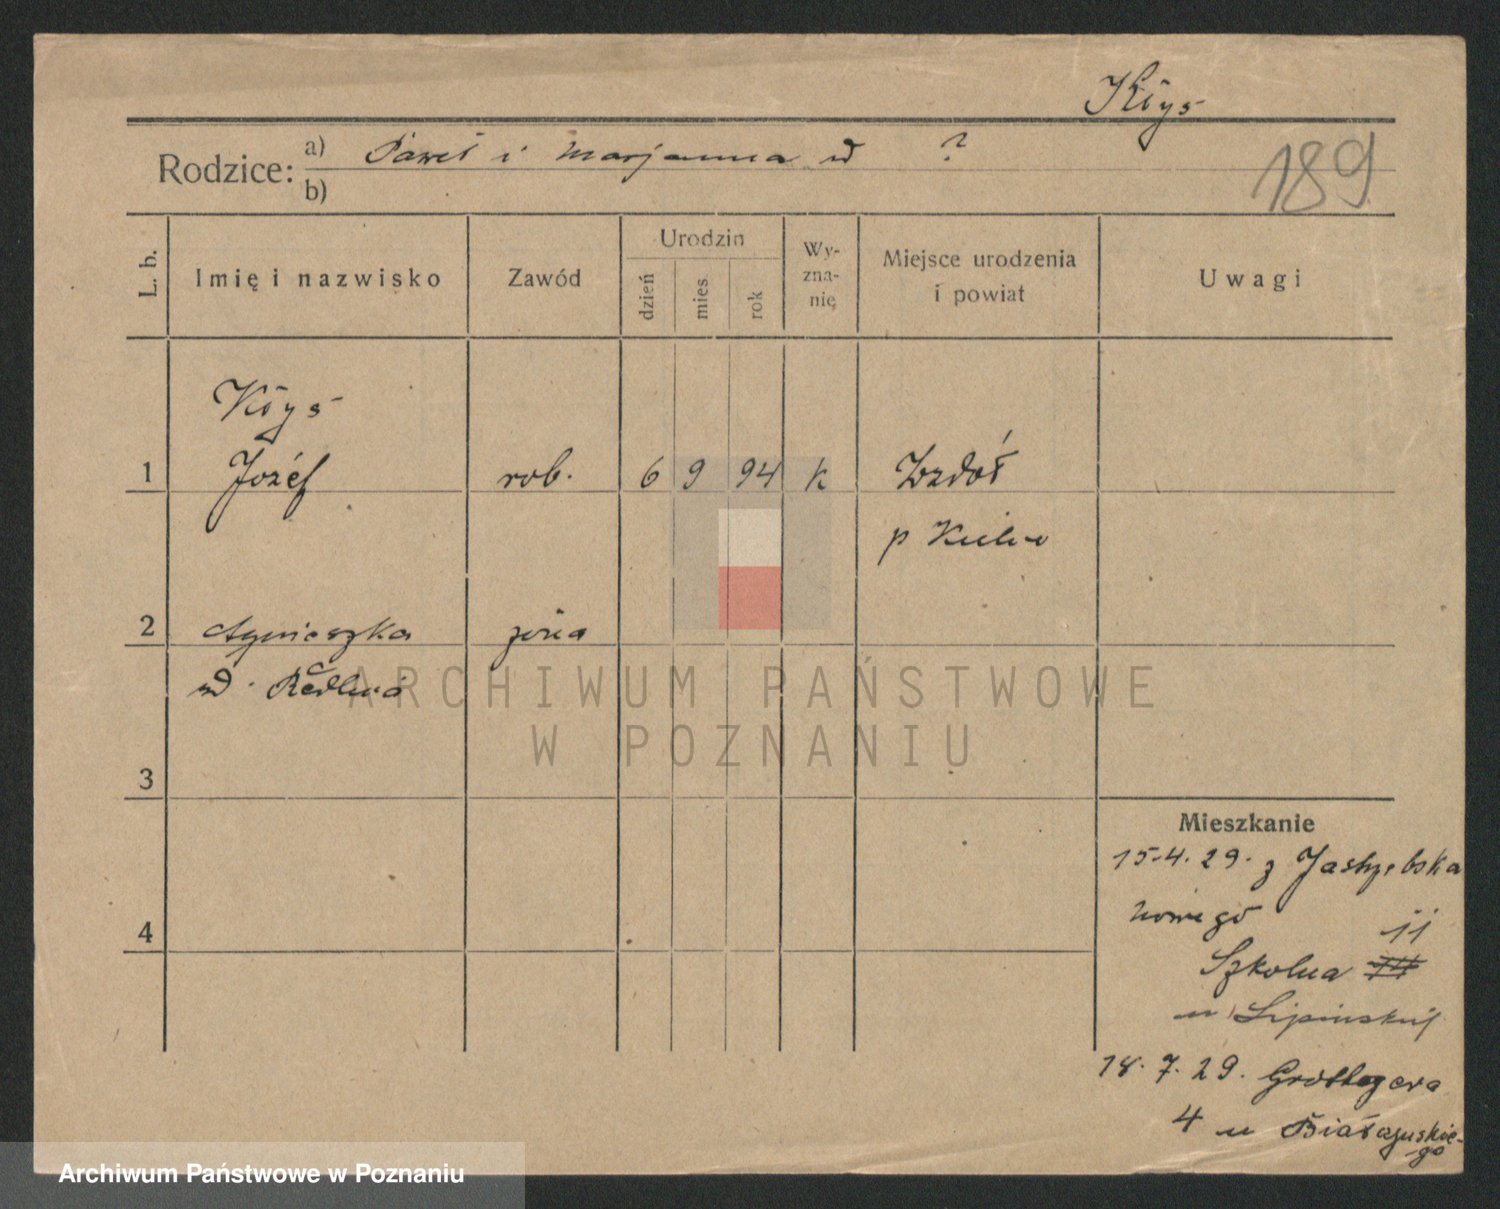 Kłys
189
Rodzice: a) Paweł i Marjanna ?
b)
L. b. Imię i nazwisko Zawód Urodzin dzień mies rok Wyznanie Miejsce urodzenia i powiat Uwagi
Kłys
1 Józef rob. 6 9 94 k Wzdół
p Kielce
2 Agnieszka żona
Redlina
3
4
Mieszkanie
15.4.29. z Jastrzębska
nowego
11
Szkolna
u Lipińskiej
18.7.29. Grottgera
4 u Białożyńskie-
go
ARCHIWUM PAŃSTWOWE
W POZNANIU
Archiwum Państwowe w Poznaniu